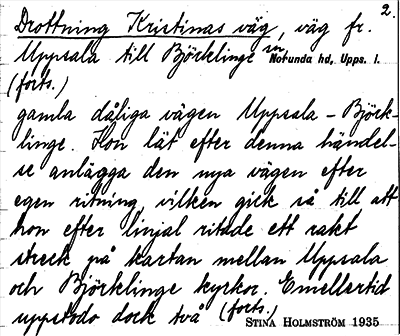 2.
Drottning Kristinas väg, väg fr.
Uppsala till Björklinge sn
Norunda hd., Upps. l.
(forts.)
gamla dåliga vägen Uppsala - Björk-
linge. Hon lät efter denna händel-
se anlägga den nya vägen efter
egen ritning, vilken gick så till att
hon efter linjal ritade ett rakt
streck på kartan mellan Uppsala
och Björklinge kyrkor. Emellertid
uppstodo dock två (forts.)
STINA HOLMSTRÖM 1935